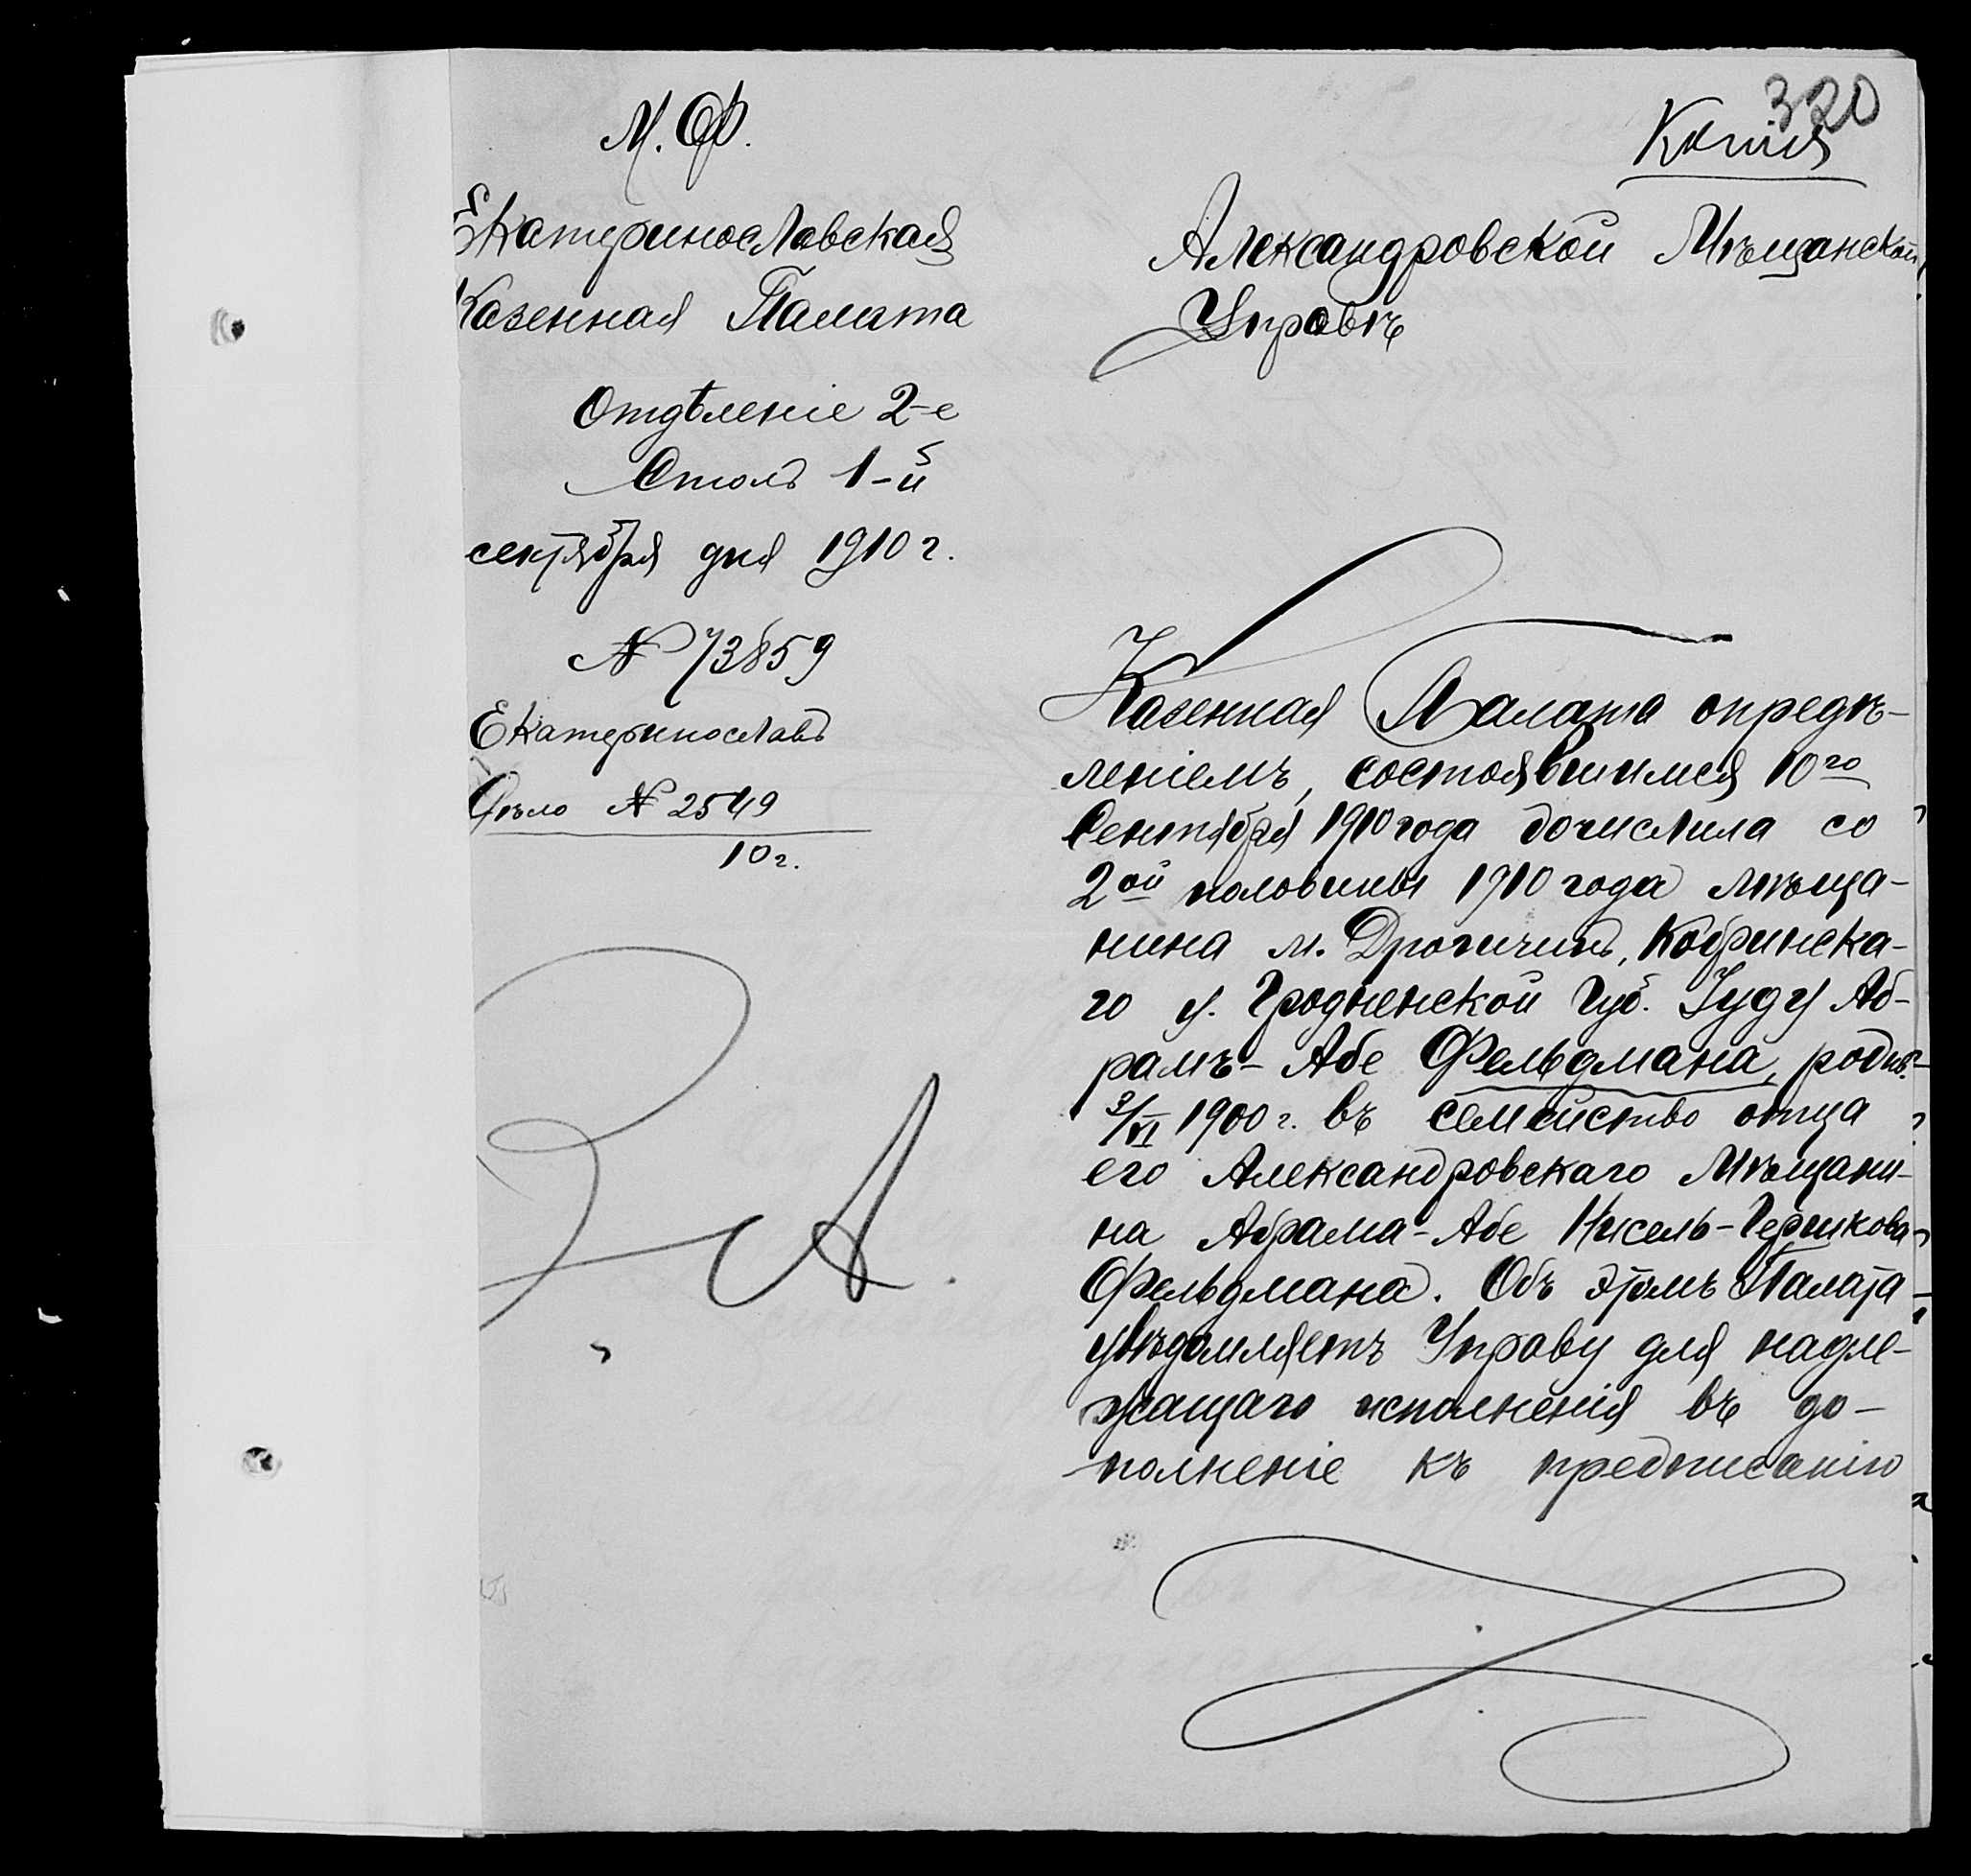 320
Копія
М. Ф.
Екатеринославская
Казенная Палата
Отдѣленіе 2-е
Столъ 1-й
сентября дня 1910 г.
№ 73859
Екатеринославъ
Дѣло № 2549
10 г.
Александровской Мѣщанской
Управѣ
Казенная Палата опредѣ-
леніемъ, состоявшимся 10го
Сентября 1910 года дочислила со
2ой половины 1910 года мѣща-
нина м. Дрогичинъ, Кобринска-
го у. Гродненской Губ. Іуду Аб-
рамъ-Абе Фельдмана, родив.
/VI 1900 г. въ семейство отца
его Александровскаго Мѣщани-
на Абрама-Абе Нисель-Гершкова
Фельдмана. Объ этомъ Палата
увѣдомляетъ Управу для надле-
жащаго исполненія въ до-
полненіе къ предписанію